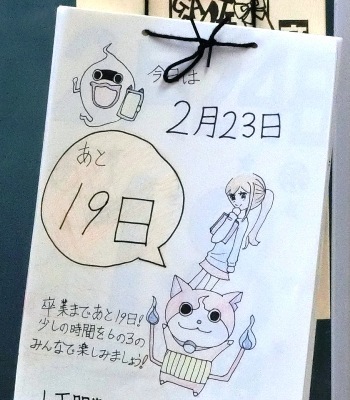 今日は
2月23日
あと
19日
卒業まであと19日!
少しの時間を6の3の
みんなで楽しみましょう!